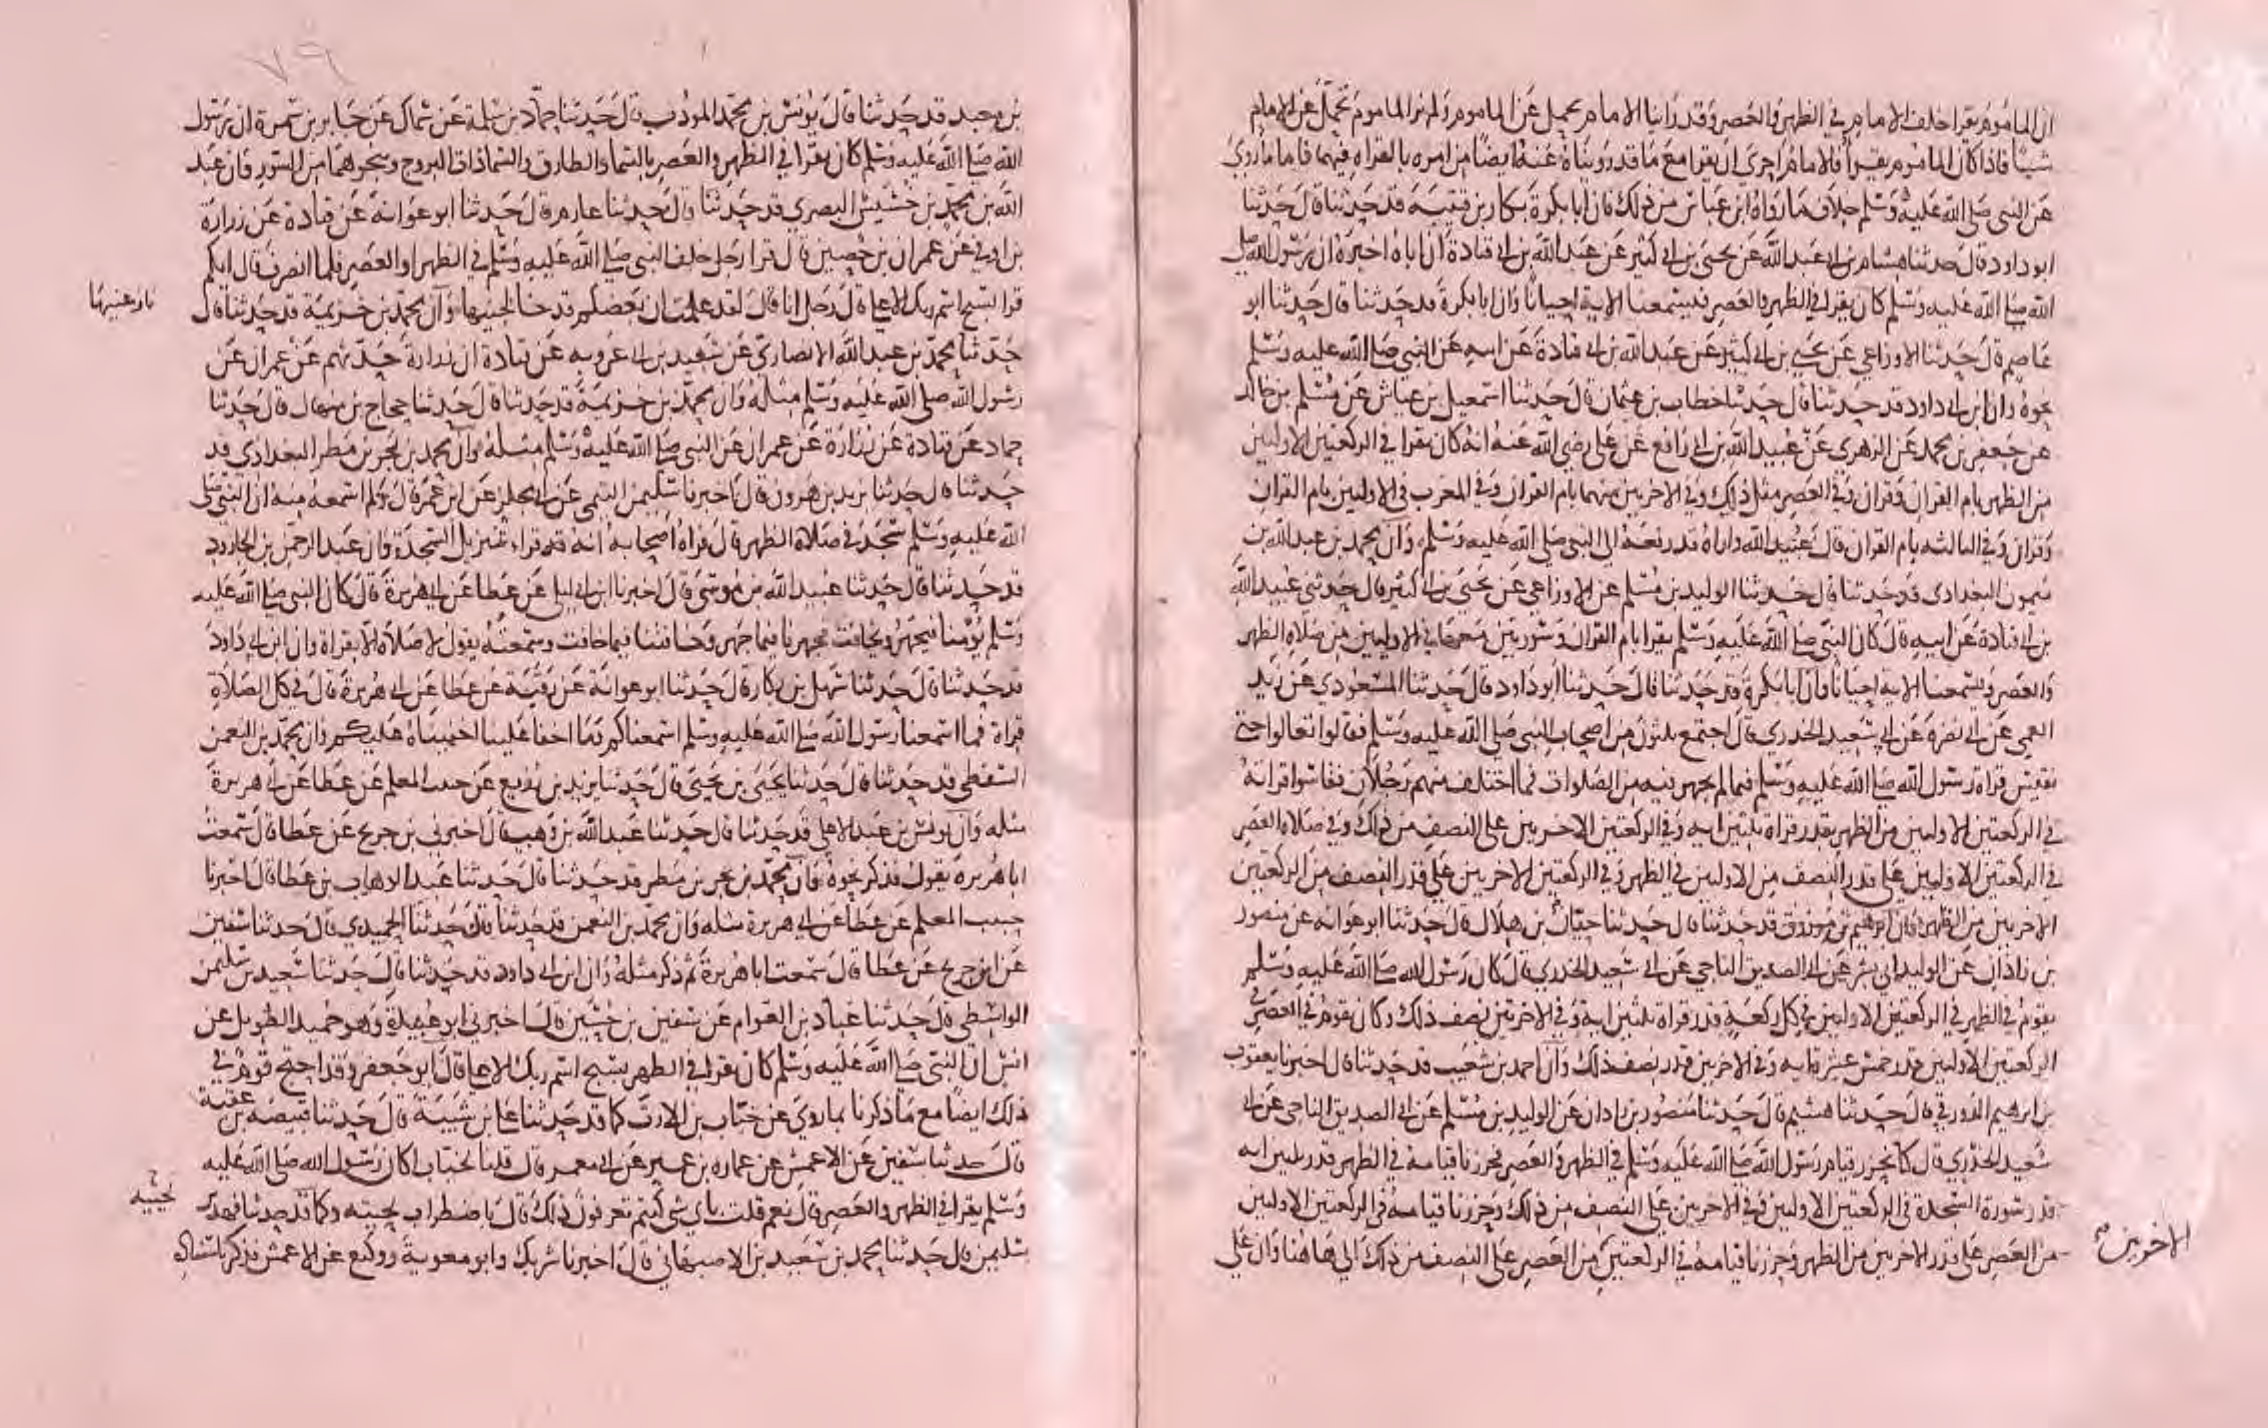 ان الماموم يقرا خلف الامام في الظهر والعصر وقد راينا الامام يحمل عن الماموم ولم نر الماموم يحمل عن الامام
شيئا فاذا كان الماموم يقرا فالامام احرى ان يقرا مع ما قد رويناه عنه ايضا من امره بالقراه فيهما فاما ما روي
عن النبي صلى الله عليه وسلم خلاف ما رواه ابن عباس من ذلك فان ابا بكرة بكار بن قتيبه قد حدثنا قال حدثنا
ابو داود قال حدثنا هشام بن ابي عبد الله عن يحيى بن ابي كثير عن عبد الله بن ابي قتادة ان اباه اخبره ان رسول الله صلى
الله صلى الله عليه وسلم كان يقرا في الظهر والعصر فيسمعنا الاية احيانا وان ابا بكرة قد حدثنا قال حدثنا ابو
عاصم قال حدثنا الاوزاعي عن يحيى بن ابي كثير عن عبد الله بن ابي قتادة عن ابيه عن النبي صلى الله عليه وسلم
نحوه وان ابن ابي داود قد حدثنا قال حدثنا خطاب بن عثمان قال حدثنا اسمعيل بن عياش عن مسلم بن خالد
عن جعفر بن محمد عن الزهري عن عبيد الله بن ابي رافع عن علي رضي الله عنه انه كان يقرا في الركعتين الاوليين
من الظهر بام القران وقران وفي العصر مثل ذلك وفي الاخريين منهما بام القران وفي المغرب في الاوليين بام القران
وقران وفي الثالثه بام القران قال عبيد الله واراه قد رفعه الى النبي صلى الله عليه وسلم وان محمد بن عبد الله بن
ميمون البغدادي قد حدثنا قال حدثنا الوليد بن مسلم عن الاوزاعي عن يحيى بن ابي كثير قال حدثني عبد الله
بن ابي قتادة عن ابيه قال كان النبي صلى الله عليه وسلم يقرا بام القران وسورتين معها في الاوليين من صلاه الظهر
والعصر ويسمعنا الاية احيانا وان ابا بكرة قد حدثنا قال حدثنا ابو داود قال حدثنا المسعودي عن زيد
العمي عن ابي نضرة عن ابي سعيد الخدري قال اجتمع ثلثون من اصحاب النبي صلى الله عليه وسلم فقالوا تعالوا حتى
نقيس قراة رسول الله صلى الله عليه وسلم فيما لم يجهر فيه من الصلوات فما اختلف منهم رجلان فقاسوا قراته
في الركعتين الاوليين من الظهر بقدر قراة ثلثين ايه وفي الركعتين الاخريين على النصف من ذلك وفي صلاه العصر
في الركعتين الاوليين على قدر النصف من الاوليين في الظهر وفي الركعتين الاخريين على قدر النصف من الركعتين
الاخريين من الظهر وان ابرهيم بن مرزوق قد حدثنا قال حدثنا حبان بن هلال قال حدثنا ابو عوانه عن منصور
بن زاذان عن الوليد ابي بشر عن ابي الصديق الناجي عن ابي سعيد الخدري قال كان رسول الله صلى الله عليه وسلم
يقوم في الظهر في الركعتين الاوليين في كل ركعة قدر قراة ثلثين اية وفي الاخريين نصف ذلك وكان يقوم في العصر في
الركعتين الاوليين قدر خمس عشرة ايه وفي الاخريين قدر نصف ذلك وان احمد بن شعيب قد حدثنا قال اخبرنا يعقوب
بن ابرهيم الدورقي قال حدثنا هشيم قال حدثنا منصور بن زاذان عن الوليد بن مسلم عن ابي الصديق الناجي عن ابي
سعيد الخدري قال كنا نحزر قيام رسول الله صلى الله عليه وسلم في الظهر والعصر فحزرنا قيامه في الظهر قدر ثلثين ايه
قدر سورة السجدة في الركعتين الاوليين وفي الاخريين على النصف من ذلك وحزرنا قيامه في الركعتين الاوليين
من العصر على قدر الاخريين من الظهر وحزرنا قيامه في الركعتين من العصر على النصف من ذلك الى هاهنا وان علي
الاخريين
بن معبد قد حدثنا قال يونس بن محمد المودب قال حدثنا حماد بن سلمة عن سماك عن جابر بن سمرة ان رسول
الله صلى الله عليه وسلم كان يقرا في الظهر والعصر بالسما والطارق والسما ذات البروج ونحوهما من السور وان عبد
الله بن محمد بن خشيش البصري قد حدثنا قال حدثنا عارم قال حدثنا ابو عوانة عن قتادة عن زرارة
بن اوفى عن عمران بن حصين قال قرا رجل خلف النبي صلى الله عليه وسلم في الظهر او العصر فلما انصرف قال ايكم
قرا بسبح اسم ربك الاعلى قال رجل انا قال لقد علمت ان بعضكم قد خالجنيها وان محمد بن خزيمة قد حدثنا قال
حدثنا محمد بن عبد الله الانصاري عن سعيد بن ابي عروبه عن قتادة ان زرارة حدثهم عن عمران عن
رسول الله صلى الله عليه وسلم مثله وان محمد بن خزيمة قد حدثنا قال حدثنا حجاج بن منهال قال حدثنا
حماد عن قتادة عن زرارة عن عمران عن النبي صلى الله عليه وسلم مثله وان محمد بن بحر بن مطر البغدادي قد
حدثنا قال حدثنا يزيد بن هرون قال اخبرنا سليمن التيمي عن ابي مجلز عن ابن عمر قال ولم اسمعه منه ان النبي صلى
الله عليه وسلم سجد في صلاة الظهر قال فراه اصحابه انه قد قرا تنزيل السجدة وان عبد الرحمن بن الجارود
قد حدثنا قال حدثنا عبيد الله بن موسى قال اخبرنا ابن ابي ليلى عن عطا عن ابي هريرة قال كان النبي صلى الله عليه
وسلم يؤمنا فيجهر ويخافت فجهرنا فيما جهر وخافتنا فيما خافت وسمعته يقول لا صلاة الا بقراة وان ابن ابي داود
قد حدثنا قال حدثنا سهل بن بكار قال حدثنا ابو عوانة عن رقبة عن عطا عن ابي هريرة قال في كل الصلاة
قراة فما اسمعنا رسول الله صلى الله عليه وسلم اسمعناكم وما اخفا علينا اخفيناه عليكم وان محمد بن النعمن
السقطي قد حدثنا قال حدثنا يحيى بن يحيى قال حدثنا يزيد بن زريع عن حبيب المعلم عن عطا عن ابي هريرة
مثله وان يونس بن عبد الاعلى قد حدثنا قال حدثنا عبد الله بن وهب قال اخبرني ابن جريج عن عطا قال سمعت
ابا هريرة يقول فذكر نحوه وان محمد بن بحر بن مطر قد حدثنا قال حدثنا عبد الوهاب بن عطا قال اخبرنا
حبيب المعلم عن عطا عن ابي هريرة مثله وان محمد بن النعمن قد حدثنا قال حدثنا الحميدي قال حدثنا سفين
عن ابن جريج عن عطا قال سمعت ابا هريرة ثم ذكر مثله وان ابن ابي داود قد حدثنا قال حدثنا سعيد بن سليمن
الواسطي قال حدثنا عباد بن العوام عن سفين بن حسين قال اخبرني ابو عبيدة وهو حميد الطويل عن
انس ان النبي صلى الله عليه وسلم كان يقرا في الظهر بسبح اسم ربك الاعلى قال ابو جعفر وقد احتج قوم في
ذلك ايضا مع ما ذكرنا بما روي عن خباب بن الارت كما قد حدثنا علي بن شيبة قال حدثنا قبيصه بن عقبة
قال حدثنا سفين عن الاعمش عن عماره بن عمير عن ابي معمر قال قلنا لخباب اكان رسول الله صلى الله عليه
وسلم يقرا في الظهر والعصر قال نعم قلت باي شي كنتم تعرفون ذلك قال باضطراب لحيته وكما قد حدثنا فهد بن
سليمن قال حدثنا محمد بن سعيد بن الاصبهاني قال اخبرنا شريك وابو معوية ووكيع عن الاعمش فذكر باسناده
لحييه